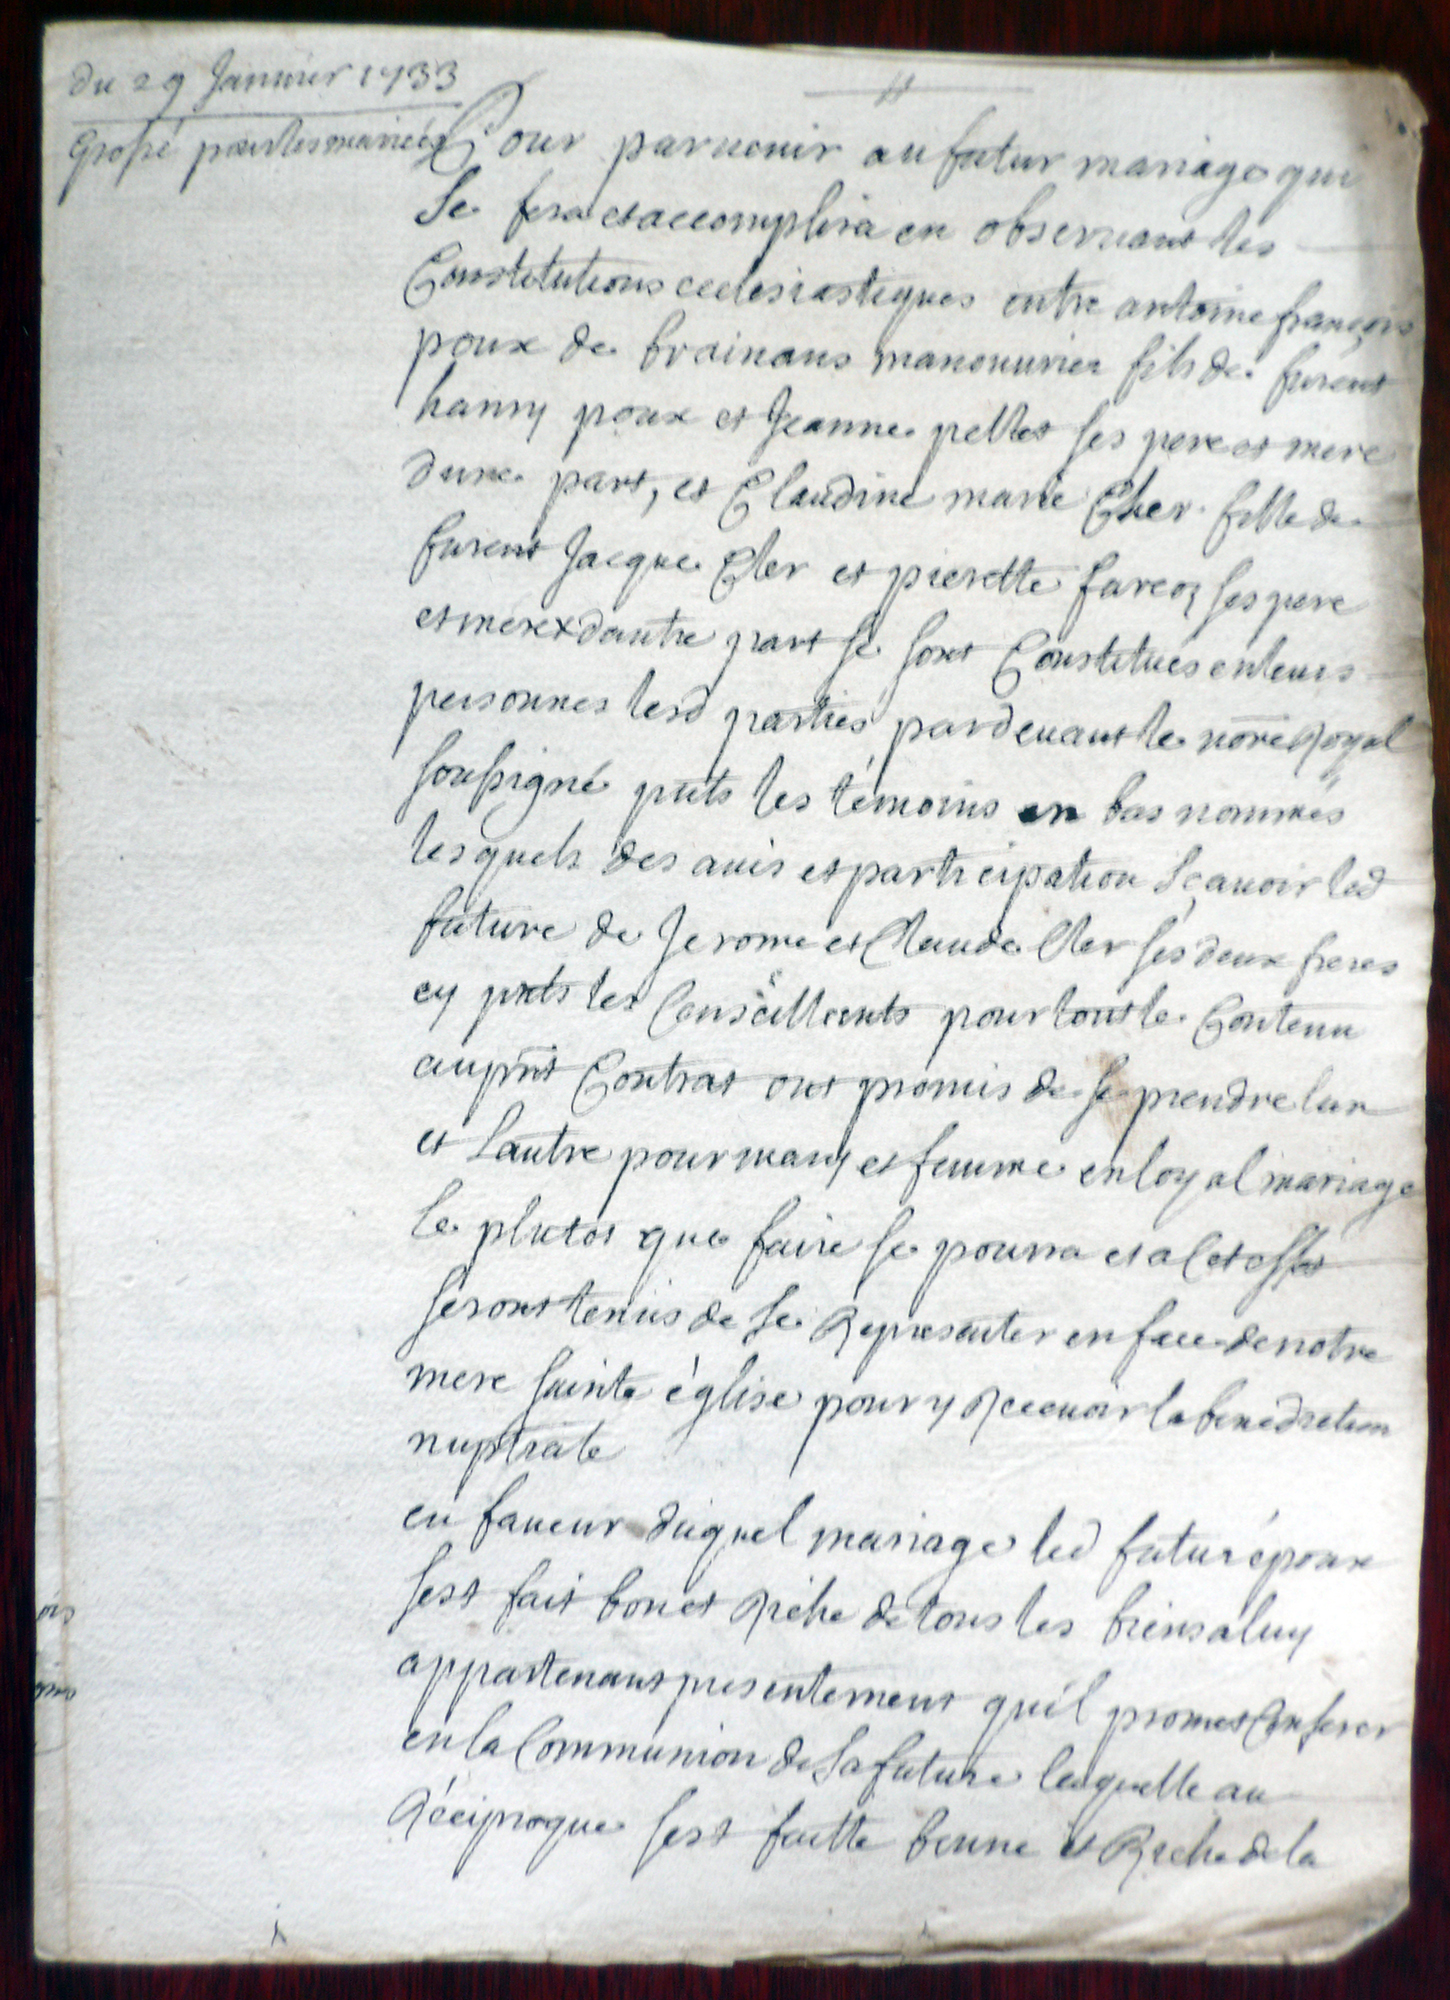 du 29 Janvier 1733
Grossé pour les mariés
Pour parvenir au futur mariage qui
se fera et accomplira en observant les
Constitutions ecclesiastiques entre antoine françois
poux de brainans manouvrier fils de furent
hanry poux et Jeanne pellet ses pere et mere
dune part, et Claudine marie Cler fille de
furent Jacque Cler et pierette fareoz ses pere
et mere x dautre part se sont Constitués en leurs
personnes lesd parties pardevant le nore Royal
soussigné pnts les témoins en bas nommés
lesquels des avis et participation sçavoir lad
future de Jerome et Claude Cler ses deux freres
cy pnts les Conseillants pour tout le Contenu
au pnt Contrat ont promis de se prendre lun
et Lautre pour mary et femme en loyal mariage
le plutot que faire se pourra et a Cet effet
seront tenus de se Représenter en face de notre
mere sainte église pour y Recevoir la benediction
nuptiale
en faveur duquel mariage led futur époux
sest fait bon et Riche de tous les biens a luy
appartenant presentement quil promet Conferer
en la Communion de sa future laquelle au
Réciproque sest faitte bonne et Riche de la
ois